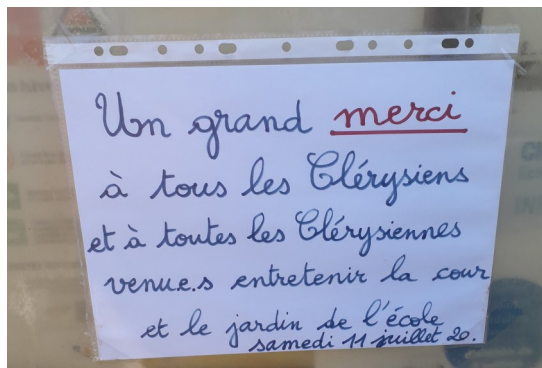 Un grand merci
à tous les Clérysiens
et à toutes les Clérysiennes
venue.s entretenir la cour
et le jardin de l'école
samedi 11 juillet 20.